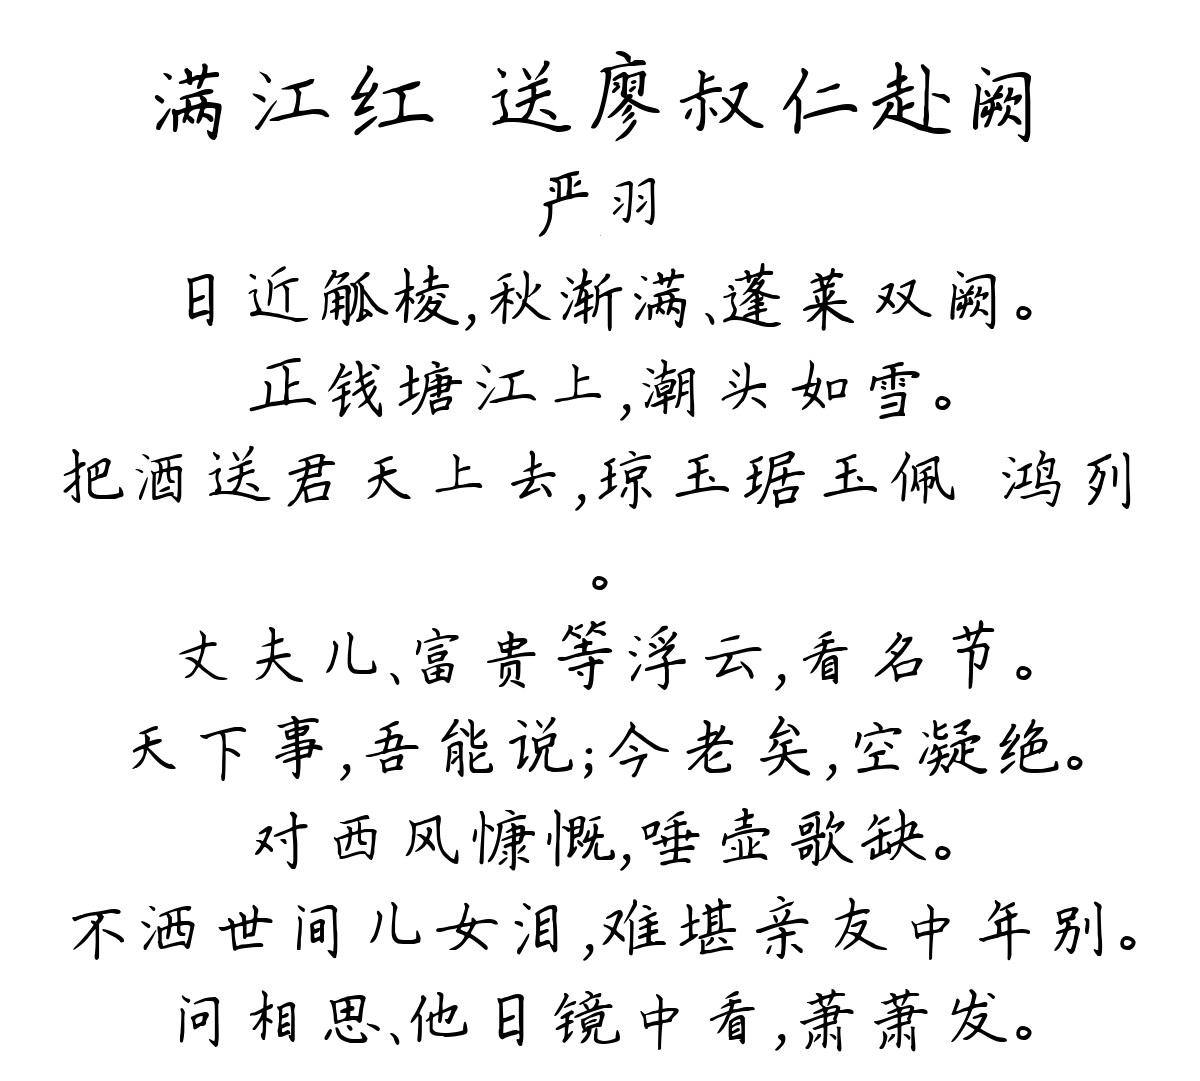 满江红 送廖叔仁赴阙
严羽
日近觚棱,秋渐满、蓬莱双阙。
正钱塘江上,潮头如雪。
把酒送君天上去,琼玉琚玉佩 鸿列
。
丈夫儿、富贵等浮云,看名节。
天下事,吾能说;今老矣,空凝绝。
对西风慷慨,唾壶歌缺。
不洒世间儿女泪,难堪亲友中年别。
问相思、他日镜中看,萧萧发。